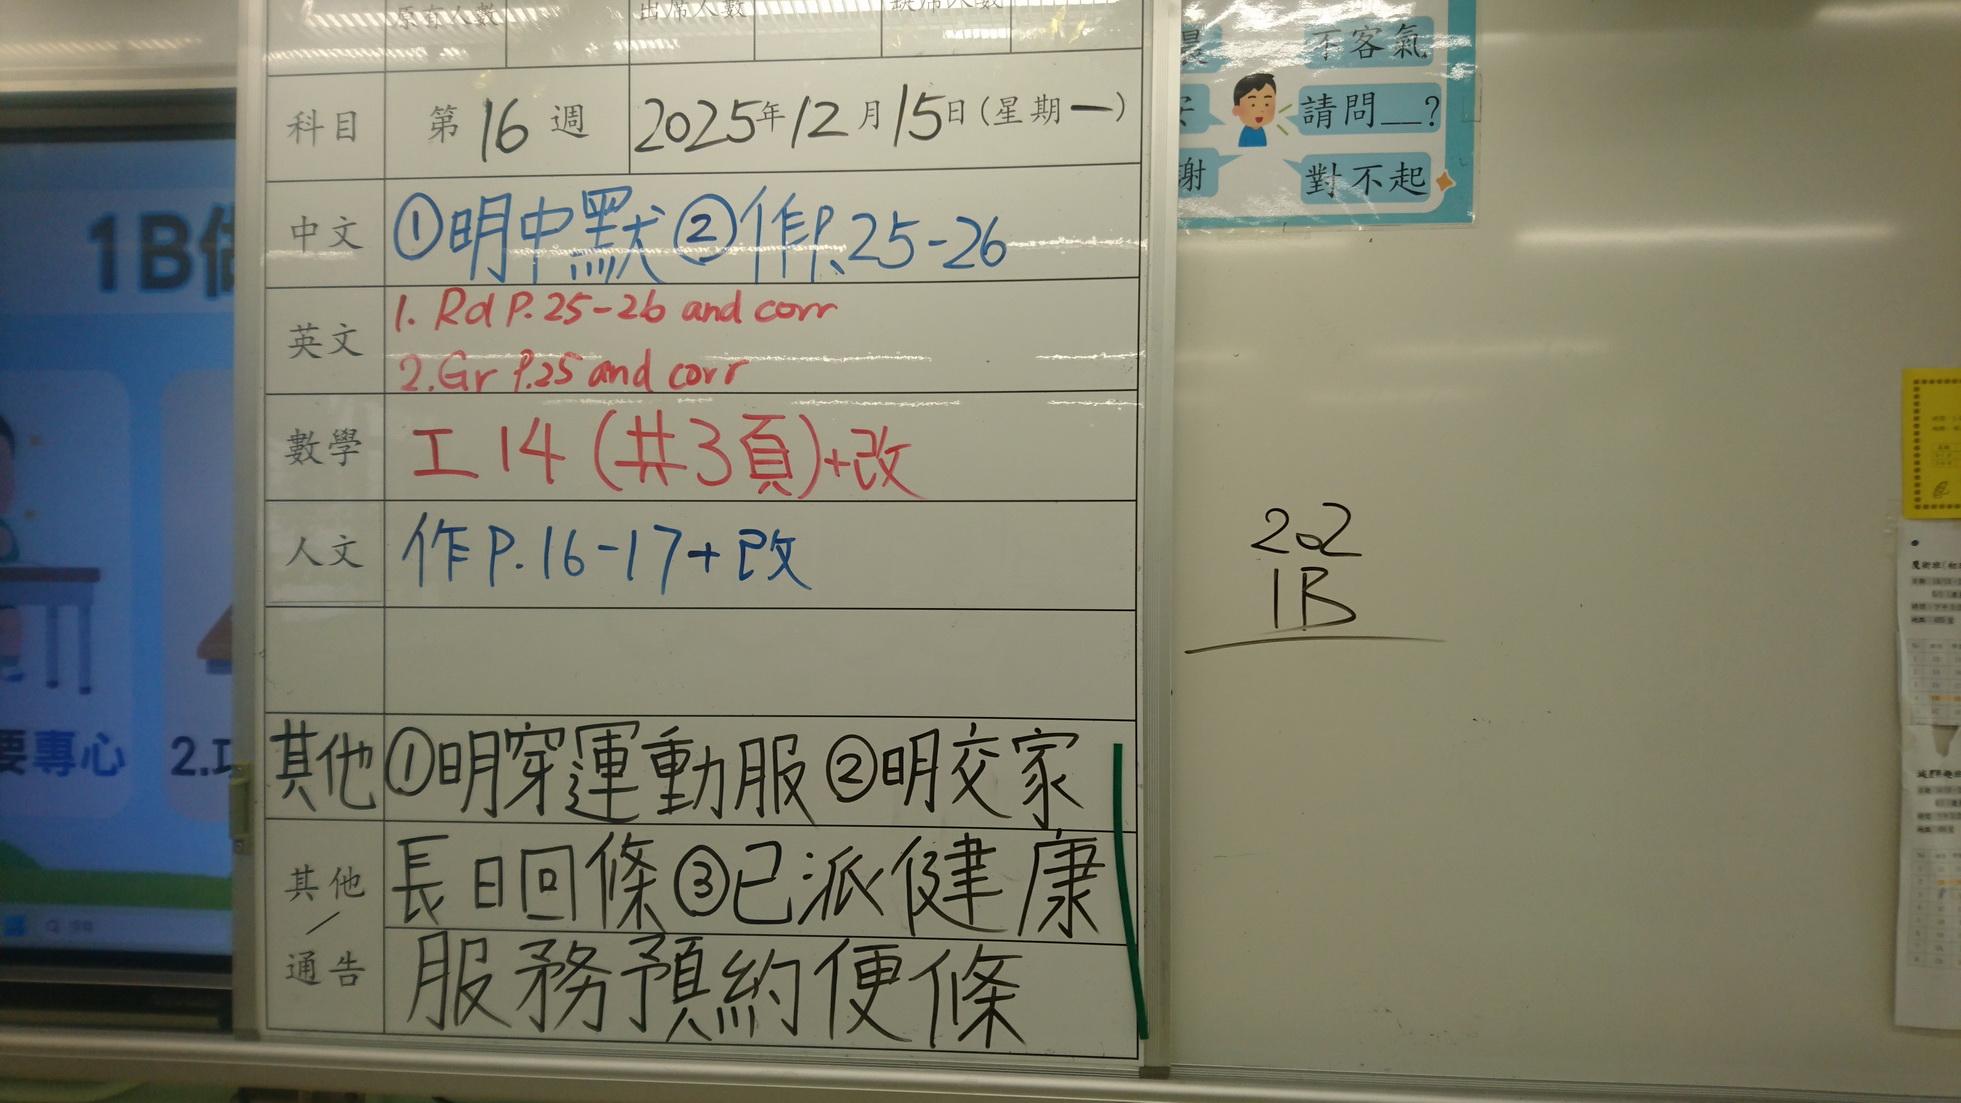 原有人數 出席人數 缺席人數
科目 第16週 2025年12月15日(星期一)
中文 ①明中默②作P.25-26
英文 1. Rd P.25-26 and corr
2.Gr P.25 and corr
數學 工14(共3頁)+改
人文 作P.16-17+改
其他 ①明穿運動服②明交家
長日回條③已派健康
服務預約便條
其他/通告
不客氣
請問__?
謝 對不起
202
1B
1B
要專心 2.